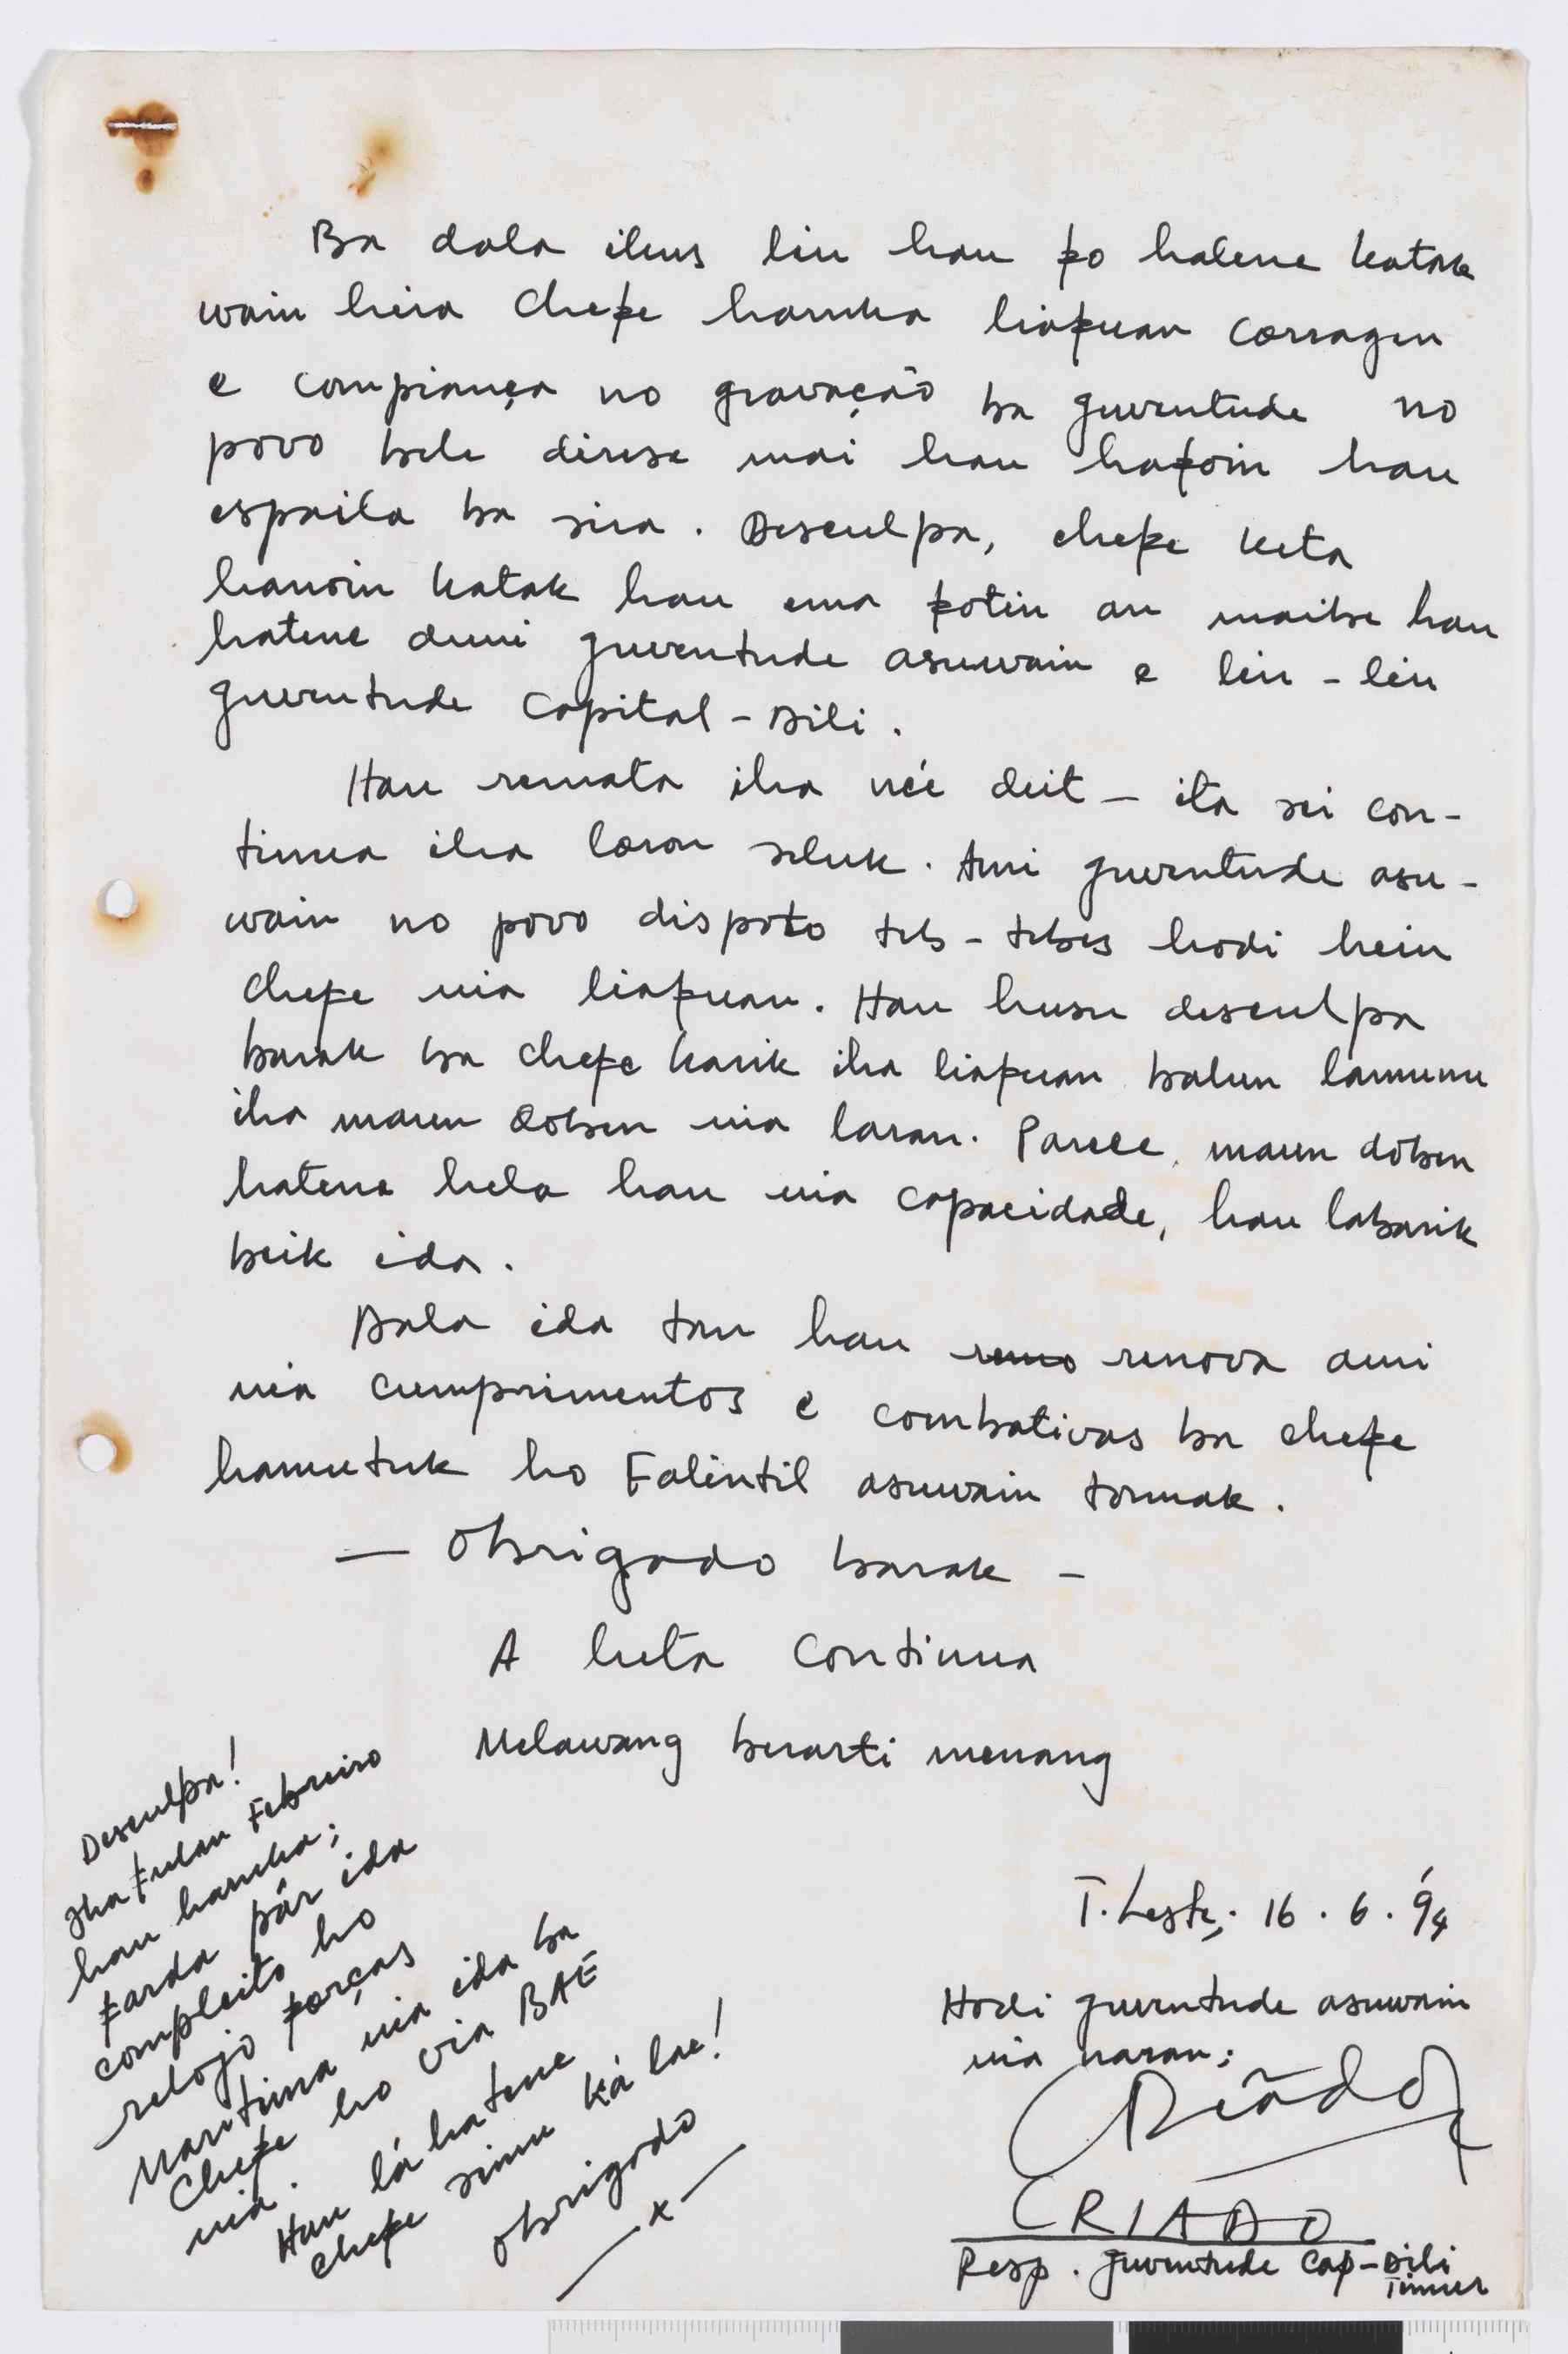 Ba dala ikus liu hau fo hatene katak
wain hira Chefe haruka liafuan corragen
e compiança no gravação ba juventude no
povo bele direse mai hau hafoin hau
espaila ba sira. Desculpa, chefe keta
hanoin katak hau ema fotin an maibe hau
hatene duni juventude asuwain e liu-liu
juventude Capital-Dili.
Hau remata iha né'e deit - ita sei con-
tinua iha loron seluk. Ami juventude asu-
wain no povo dispoto teb-tebes hodi hein
chefe nia liafuan. Hau husu desculpa
barak ba chefe karik iha liafuan balun lamunu
iha maun doben nia laran. Parece, maun doben
hatene hela hau nia capacidade, hau labarik
beik ida.
Dala ida tan hau reno renova ami
nia cumprimentos e combativas ba chefe
hamutuk ho Falintil asuwain tomak.
— Obrigado barak -
A luta continua
Melawang berarti menang
Desculpa!
Iha fulan Febreiro
hau haruka;
farda pár ida
compleito ho
relojo forças
Maritima nia ida ba
Chefe ho via BAE
nia.
Hau lá hatene
chefe simu ká lae!
Obrigado
—x—
T. Leste, 16.6.'94
Hodi juventude asuwain
nia naran;
Criado
CRIADO
Resp. juventude Cap-Dili
Timur